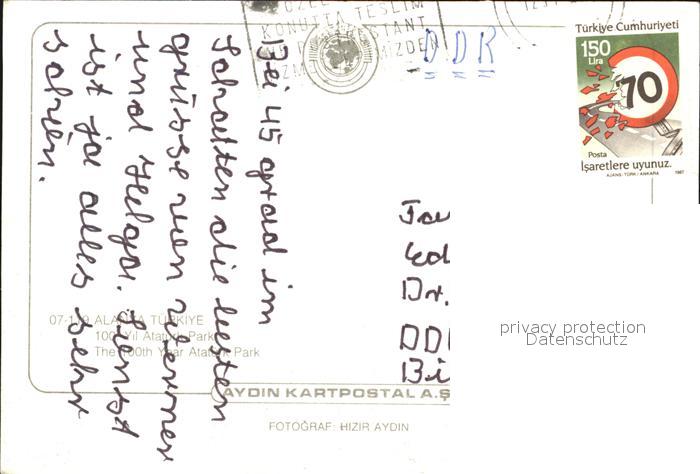 KONUTTA TESLİM
DDR
Türkiye Cumhuriyeti
150
Lira
70
Posta
İşaretlere uyunuz.
AJANS-TÜRK / ANKARA 1987
Bei 45 grad im
Schatten die besten
grüsse von Werner
und Helga. Sonst
ist ja alles sehr
schön.
Dr.
07-119 ALANYA TÜRKİYE
100. Yıl Atatürk Parkı
The 100th Year Atatürk Park
AYDIN KARTPOSTAL A.Ş
FOTOĞRAF: HIZIR AYDIN
privacy protection
Datenschutz